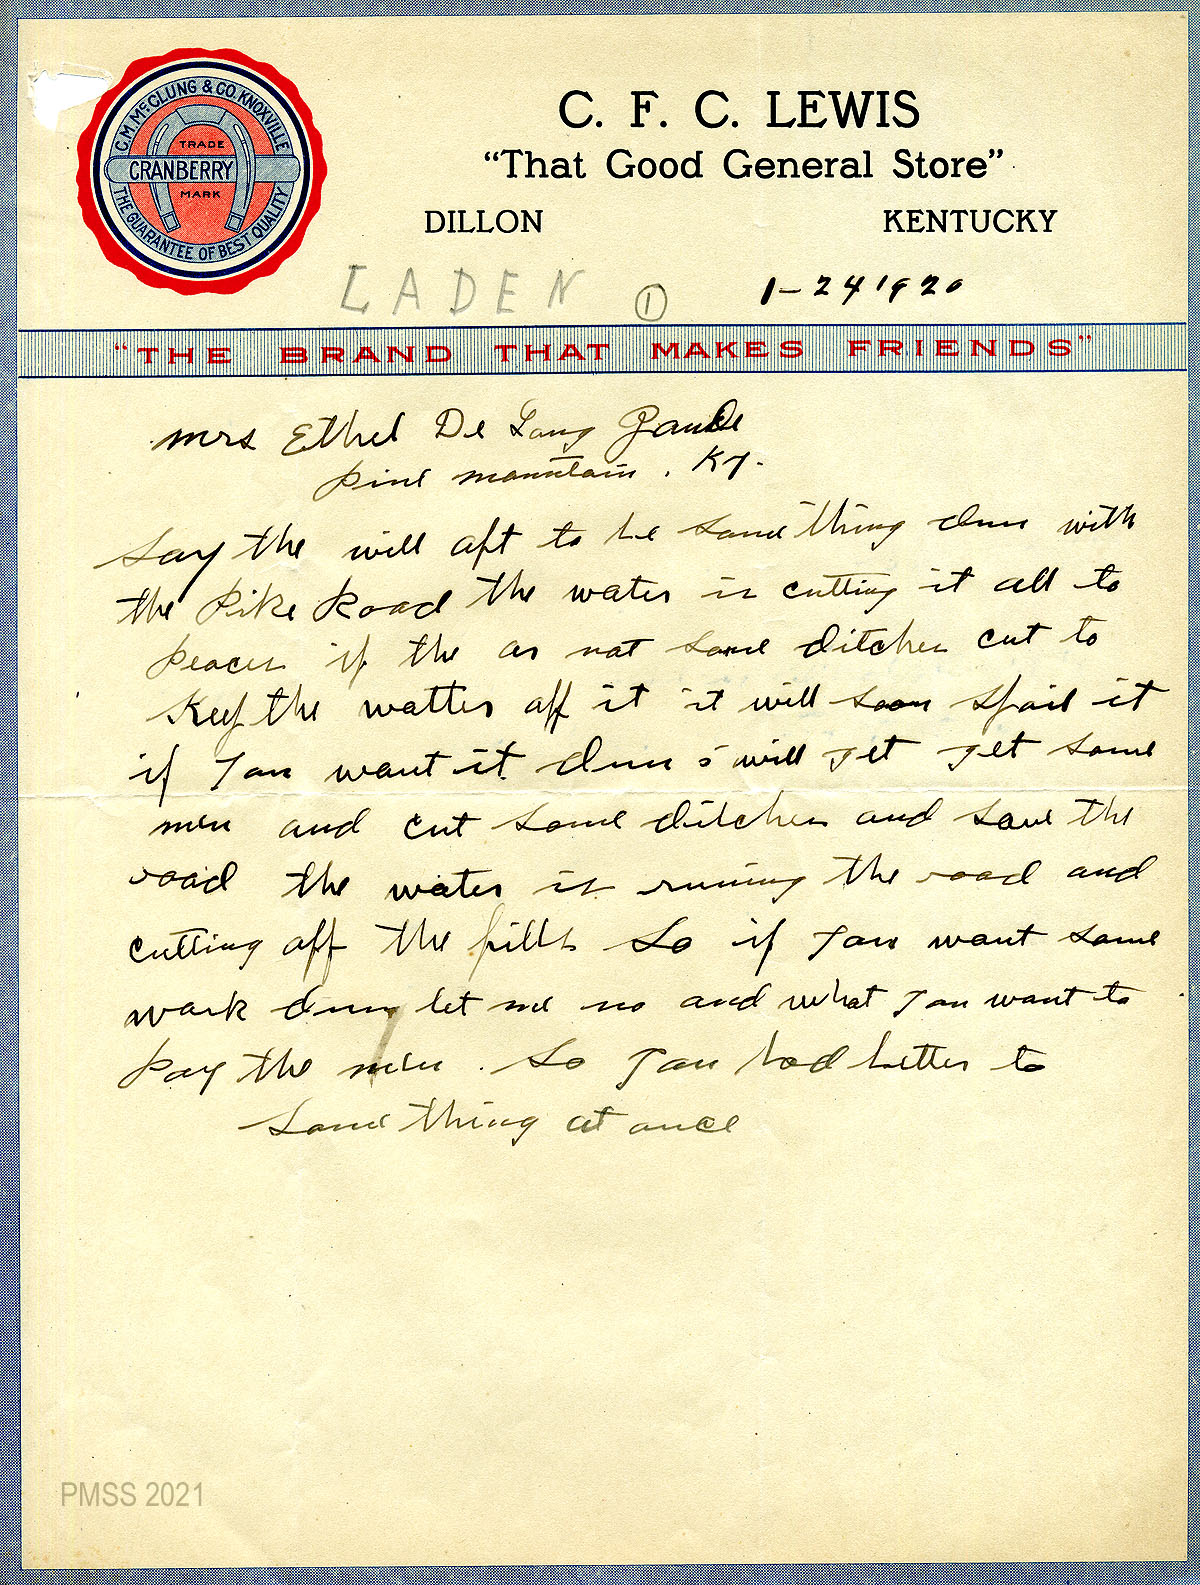 C.M. McCLUNG & CO. KNOXVILLE
TRADE
CRANBERRY
MARK
THE GUARANTEE OF BEST QUALITY
C. F. C. LEWIS
"That Good General Store"
DILLON KENTUCKY
LADEN ① 1-24 1920
"THE BRAND THAT MAKES FRIENDS"
Mrs Ethel De Long Zande
Pine mountain. Ky.
Say the will aft to be some thing dun with
the Pike Road the water is cutting it all to
peaces if the ar not some ditches cut to
Keep the watter off it it will soon spoil it
if you want it dun i will get get some
men and cut some ditches and save the
road the water is running the road and
cutting off the fills So if you want some
work dun let me no and what you want to
pay the men. So you had better to
some thing at once
PMSS 2021